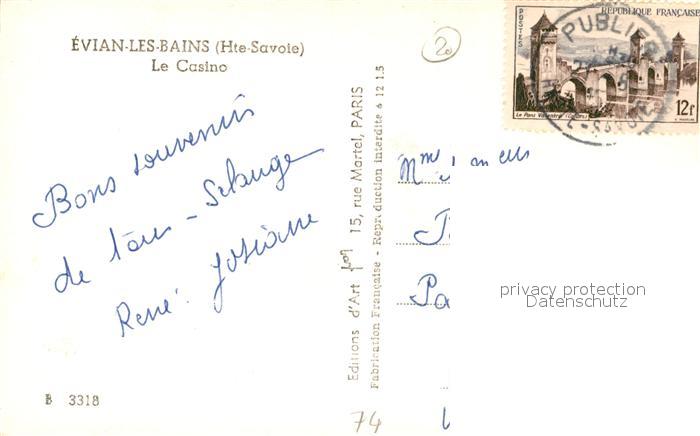 ÉVIAN-LES-BAINS (Hte-Savoie)
Le Casino
Bons souvenirs
de tous - Solange
René. Josiane
B 3318
Editions d'Art 15, rue Martel, PARIS
Fabrication Française - Reproduction interdite 6 12 1.5
20
POSTES
RÉPUBLIQUE FRANÇAISE
Le Pont Valentré (Cahors)
12f
PUBLIER
Hte-SAVOIE
Mme
privacy protection
Datenschutz
74